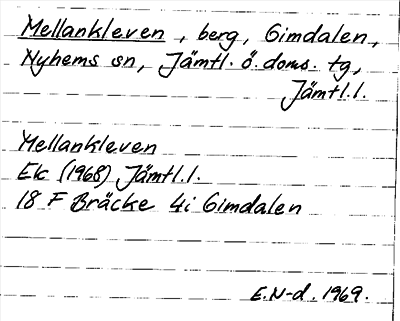 Mellankleven, berg, Gimdalen,
Nyhems sn, Jämtl. ö. doms. tg,
Jämtl.l.
Mellankleven
Ek (1968) Jämtl.l.
18 F Bräcke 4i Gimdalen
E.N-d. 1969.